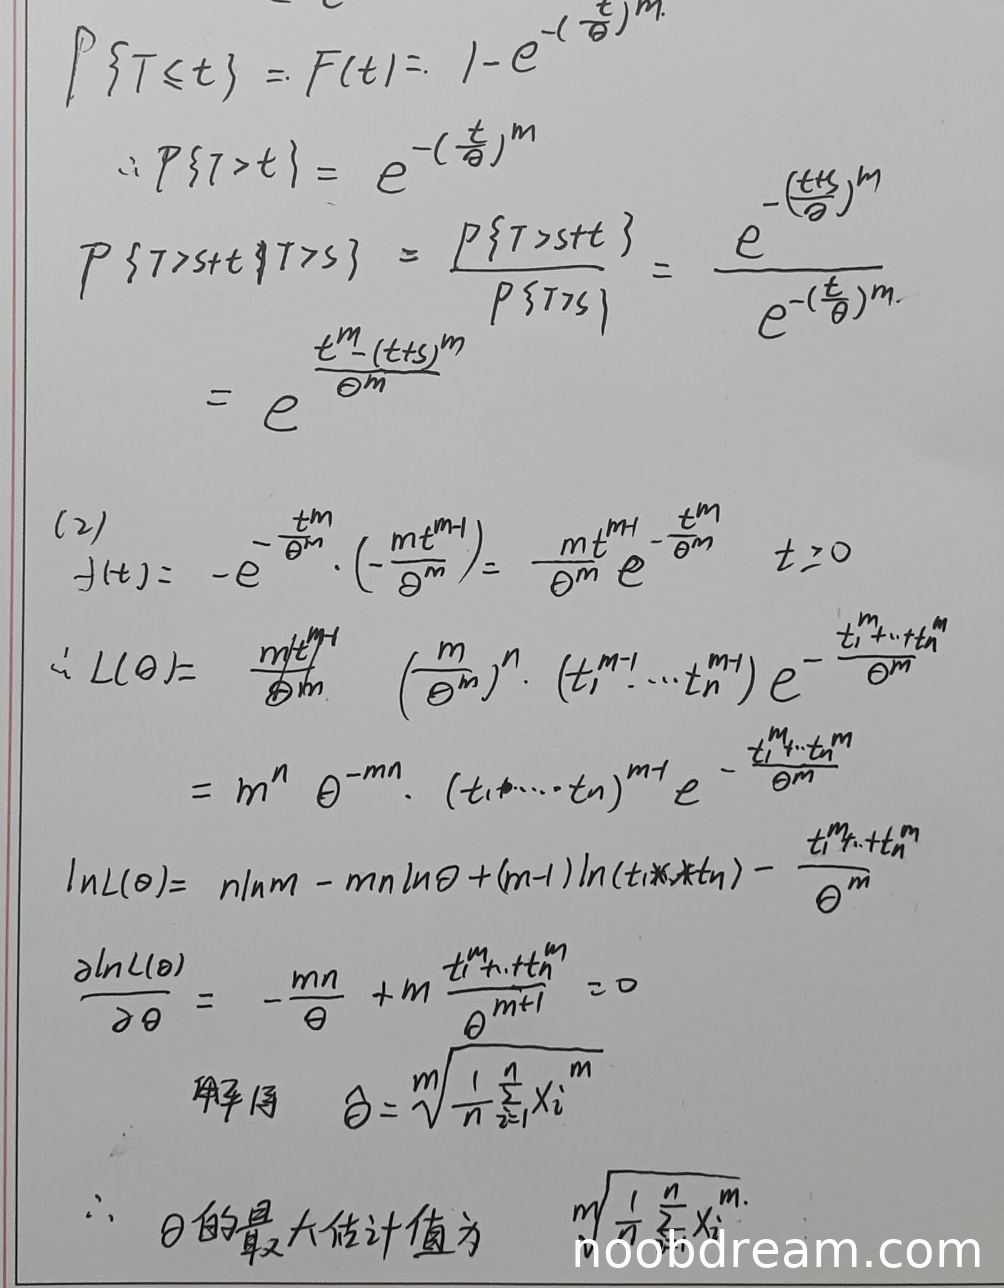 P{T≤t} = F(t) = 1-e^{-(t/θ)^m}
∴P{T>t} = e^{-(t/θ)^m}
P{T>s+t|T>s} = P{T>s+t}/P{T>s} = e^{-((t+s)/θ)^m}/e^{-(t/θ)^m}
= e^{(t^m-(t+s)^m)/θ^m}
(2)
f(t) = -e^{-t^m/θ^m}·(-mt^{m-1}/θ^m) = mt^{m-1}/θ^m e^{-t^m/θ^m} t≥0
∴ L(θ) = (m/θ^m)^n·(t₁^{m-1}·...t_n^{m-1}) e^{-(t₁^m+..+t_n^m)/θ^m}
= m^n θ^{-mn}·(t₁·....·t_n)^{m-1} e^{-(t₁^m+..t_n^m)/θ^m}
lnL(θ) = nlnm - mnlnθ + (m-1)ln(t₁*..*t_n) - (t₁^m+..+t_n^m)/θ^m
∂lnL(θ)/∂θ = -mn/θ + m (t₁^m+..+t_n^m)/θ^{m+1} = 0
解得 θ̂ = \sqrt[m]{1/n ∑_{i=1}^{n} X_i^m}
∴ θ的最大估计值为 \sqrt[m]{1/n ∑_{i=1}^{n} X_i^m}
noobdream.com